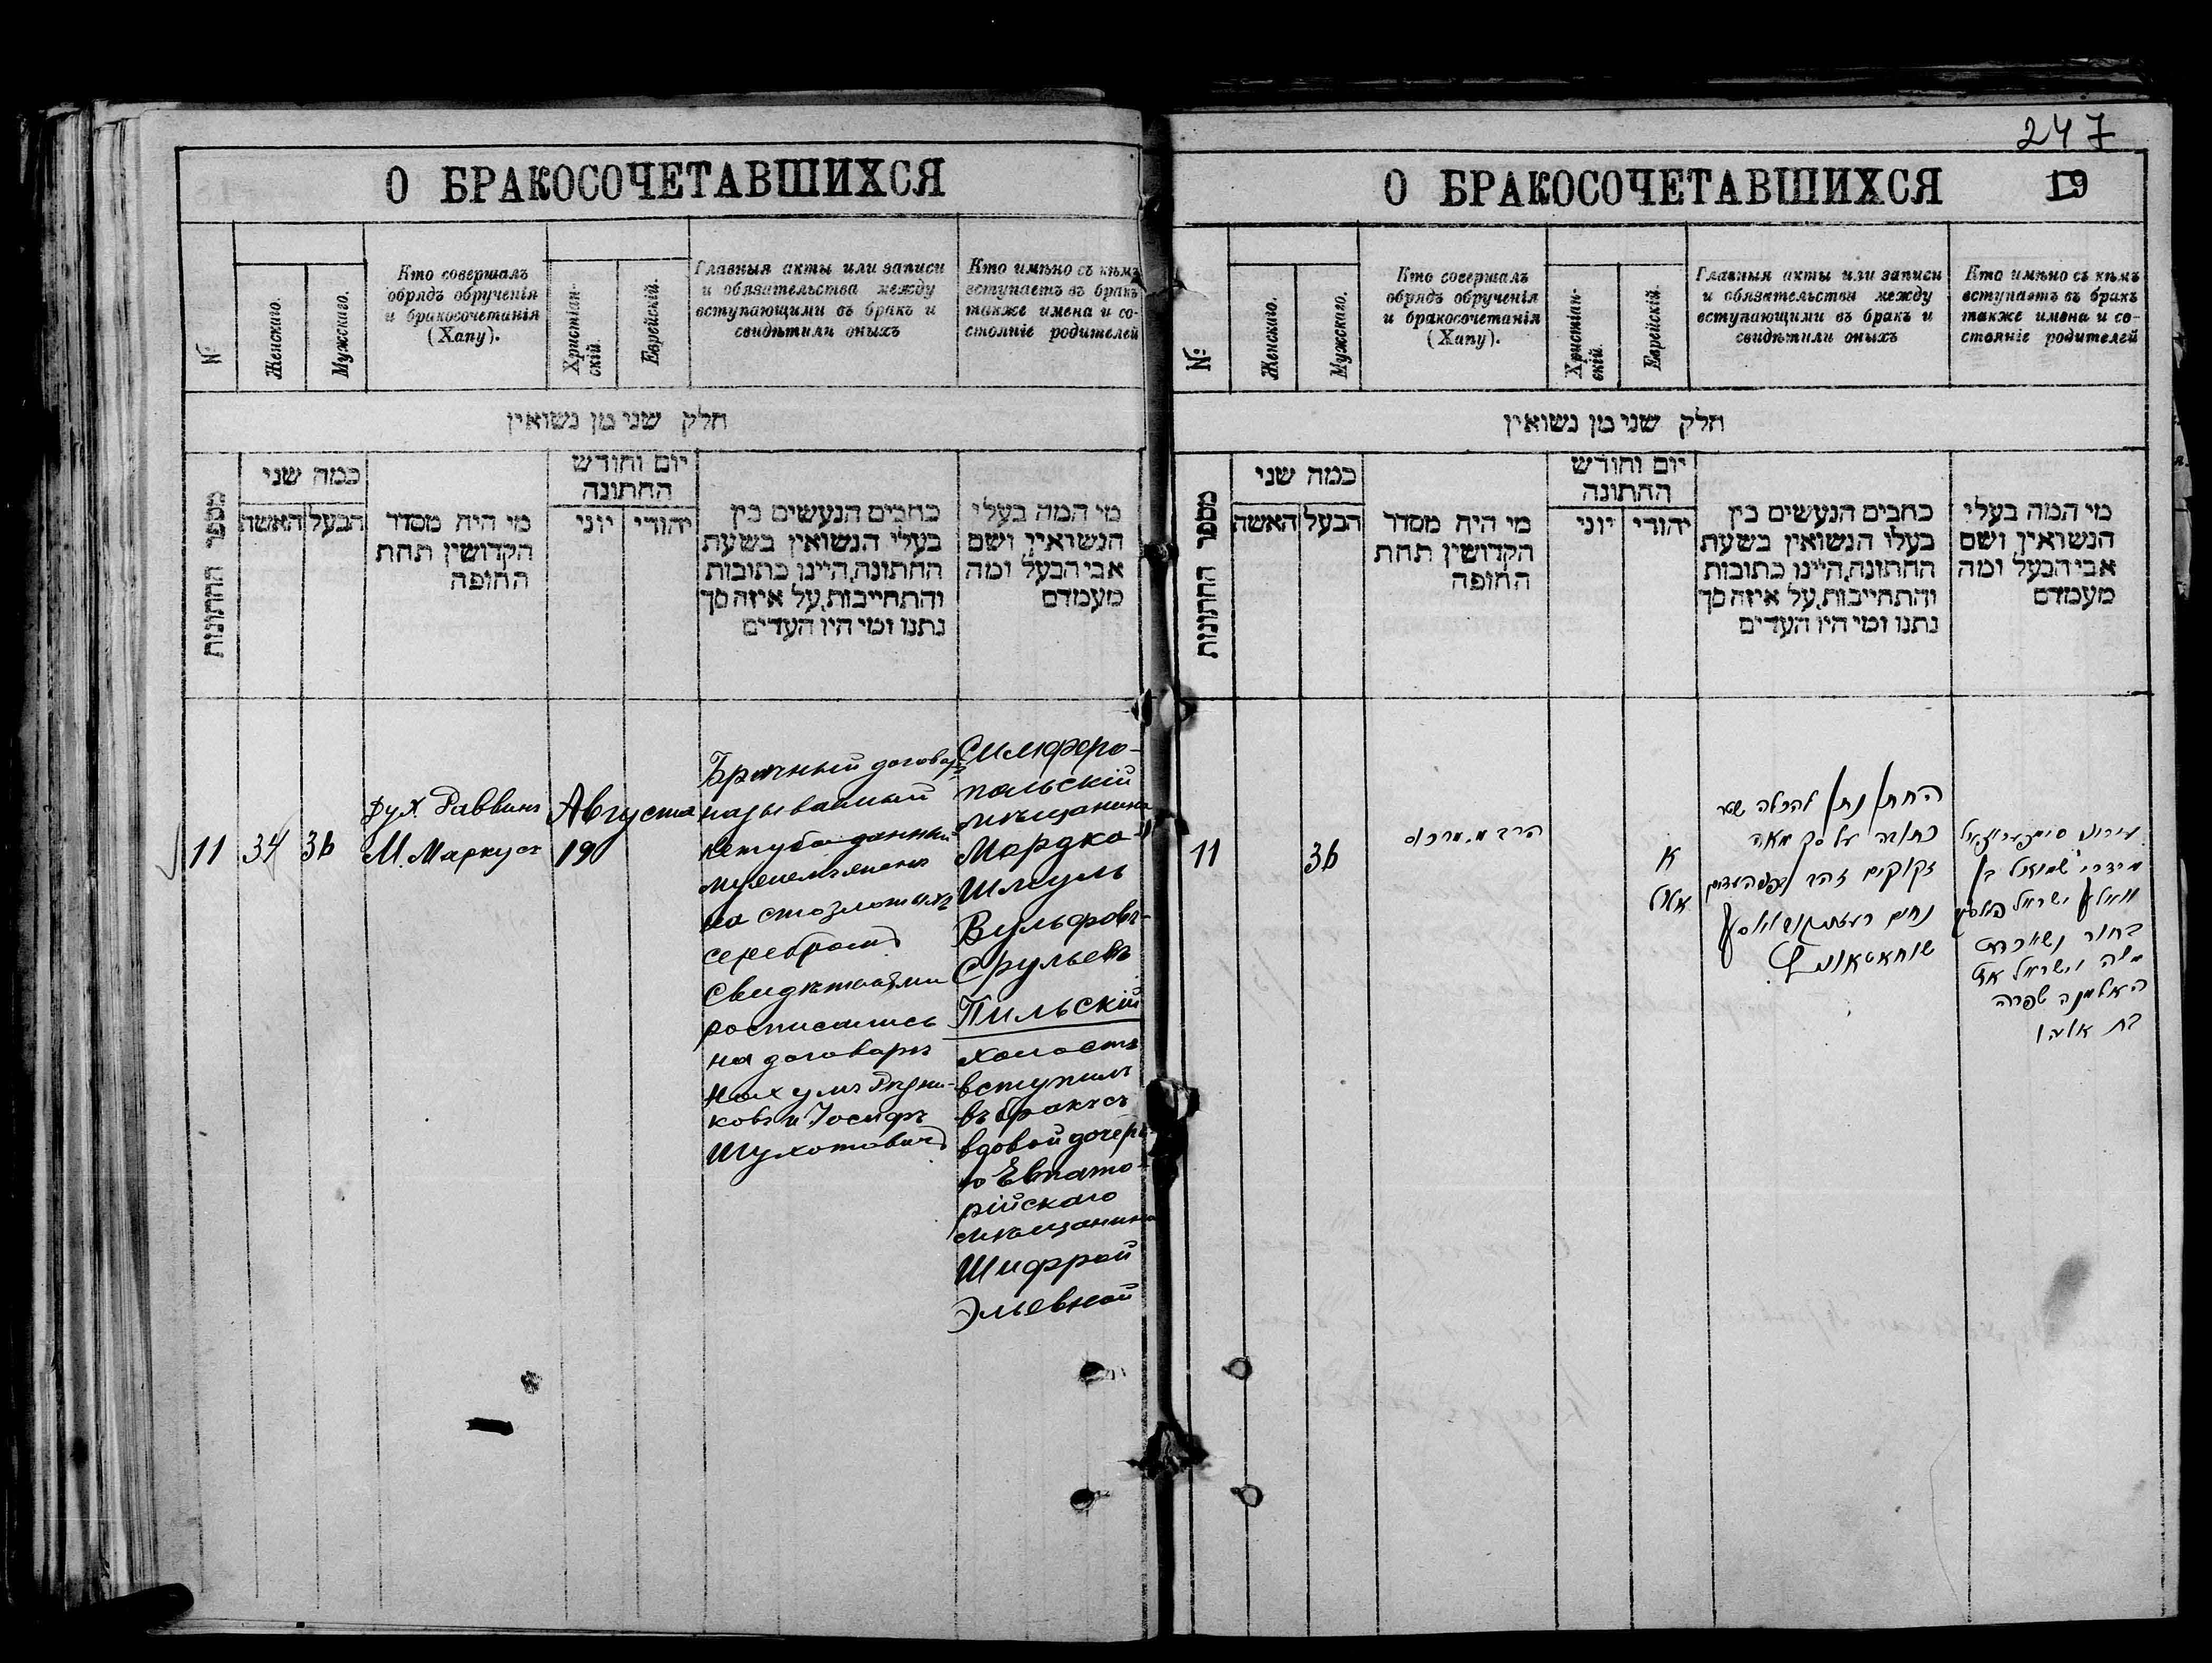 О БРАКОСОЧЕТАВШИХСЯ
№
Женскаго.
Мужскаго.
Кто совершалъ
обрядъ обрученія
и бракосочетанія
(Хапу).
Христіан-
скій.
Еврейскій.
Главныя акты или записи
и обязательства между
вступающими въ бракъ и
свидѣтили оныхъ
Кто имѣно съ кѣмъ
вступаетъ въ бракъ
также имена и со-
стояніе родителей
חלק שני מן נשואין
מספר החתונות
כמה שני
הבעל
האשה
מי היה מסדר
הקדושין תחת
החופה
יום וחודש
החתונה
יהודי
יוני
כתבים הנעשים בין
בעלי הנשואין בשעת
החתונה, היינו כתובות
והתחייבות, על איזה סך
נתנו ומי היו העדים
מי המה בעלי
הנשואין, ושם
אבי הבעל ומה
מעמדם
11
34
36
Дух. Раввинъ
М. Маркусъ
Августа
19
Брачный договоръ
называемый
кетуба данный
мужемъ женѣ
на сто злотыхъ
серебромъ
Свидѣтелями
росписались
на договорѣ
Нахумъ Рѣзни-
ковъ и Іосифъ
Шухотовичъ
Симферо-
польскій
мѣщанинъ
Мордко-
Шмуль
Вульфовъ-
Срульевъ
Пильскій
холостъ
вступилъ
въ бракъ съ
вдовой дочерь-
ю Евпато-
рійскаго
мѣщанина
Шифрой
Эльевной
247
О БРАКОСОЧЕТАВШИХСЯ
19
№
Женскаго.
Мужскаго.
Кто совершалъ
обрядъ обрученія
и бракосочетанія
(Хапу).
Христіан-
скій.
Еврейскій.
Главныя акты или записи
и обязательства между
вступающими въ бракъ и
свидѣтили оныхъ
Кто имѣно съ кѣмъ
вступаетъ въ бракъ
также имена и со-
стояніе родителей
חלק שני מן נשואין
מספר החתונות
כמה שני
הבעל
האשה
מי היה מסדר
הקדושין תחת
החופה
יום וחודש
החתונה
יהודי
יוני
כתבים הנעשים בין
בעלי הנשואין בשעת
החתונה, היינו כתובות
והתחייבות, על איזה סך
נתנו ומי היו העדים
מי המה בעלי
הנשואין, ושם
אבי הבעל ומה
מעמדם
11
36
הרב מ. מרכוס
א
אלול
החתן נתן להכלה שטר
כתובה על סך מאה
זקוקים זהב
נחום
מרדכי שמואל בן
וואלף ישראל
בחור נשא
האלמנה שפרה
בת